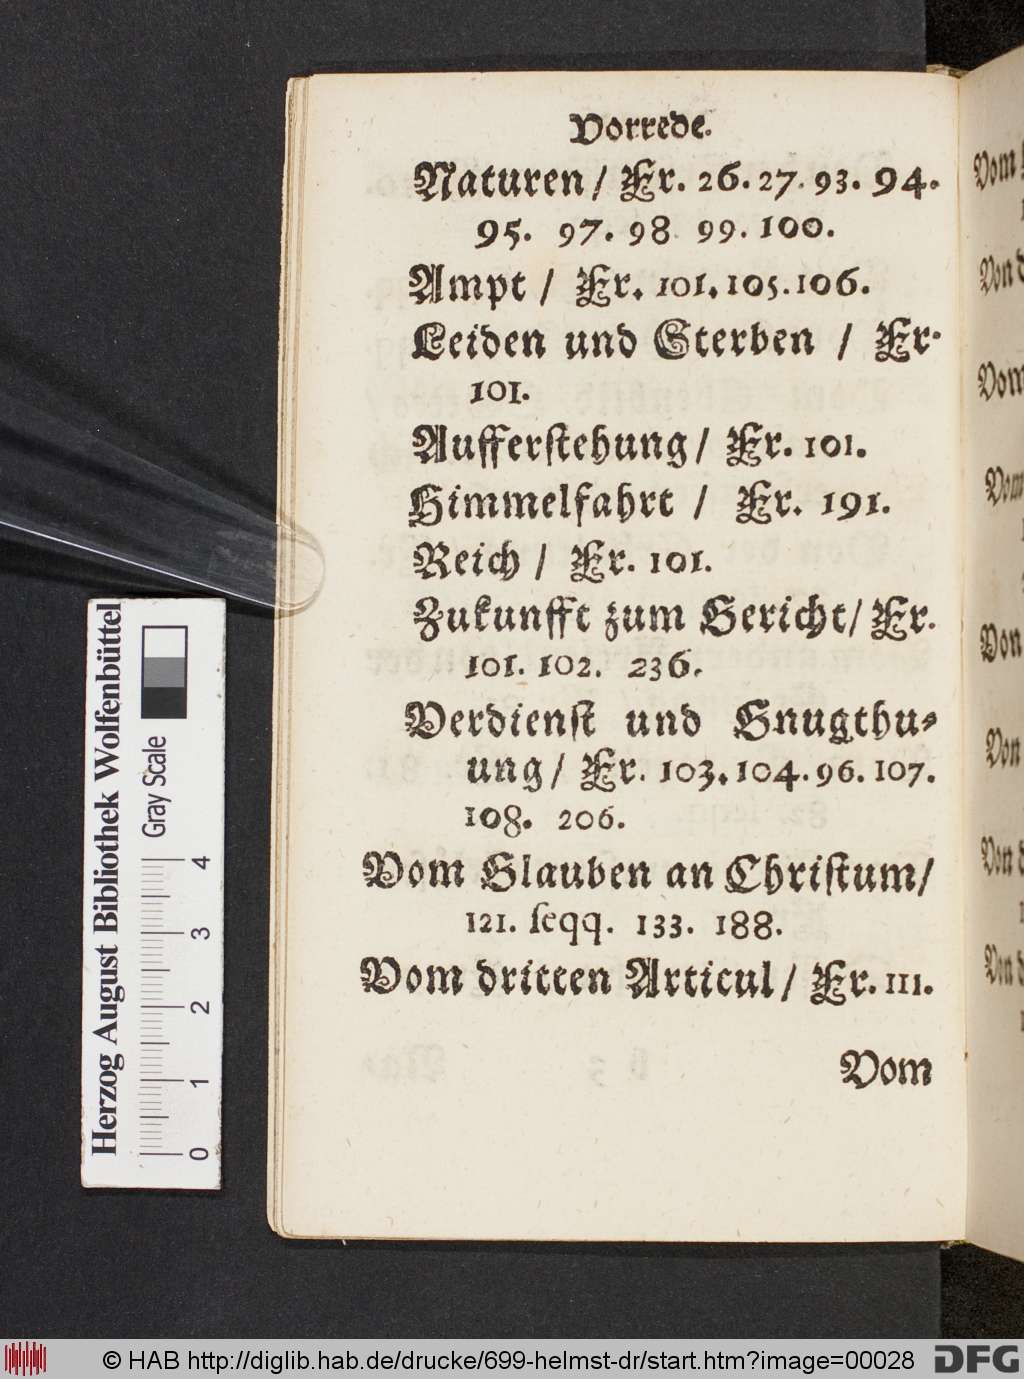 Vorrede.
Naturen / Fr. 26. 27. 93. 94.
95. 97. 98 99. 100.
Ampt / Fr. 101. 105. 106.
Leiden und Sterben / Fr.
101.
Aufferſtehung / Fr. 101.
Himmelfahrt / Fr. 191.
Reich / Fr. 101.
Zukunfft zum Gericht / Fr.
101. 102. 236.
Verdienſt und Gnugthu⸗
ung / Fr. 103. 104. 96. 107.
108. 206.
Vom Glauben an Chriſtum /
121. ſeqq. 133. 188.
Vom dritten Articul / Fr. 111.
Vom
Herzog August Bibliothek Wolfenbüttel
Gray Scale
0 1 2 3 4
© HAB http://diglib.hab.de/drucke/699-helmst-dr/start.htm?image=00028
DFG